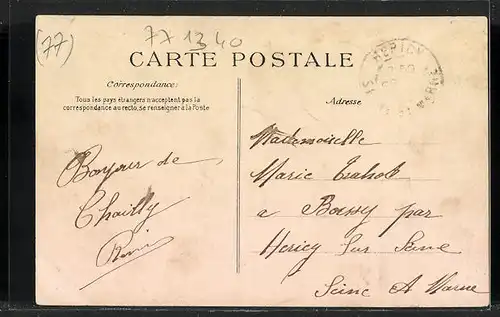 (77)
77 13 40
CARTE POSTALE
HERICY
Correspondance:
Tous les pays étrangers n'acceptent pas la
correspondance au recto, se renseigner à la Poste
Adresse
Bonjour de
Chailly
Mademoiselle
Marie
a Bassy par
Hericy Sur Seine
Seine A Marne